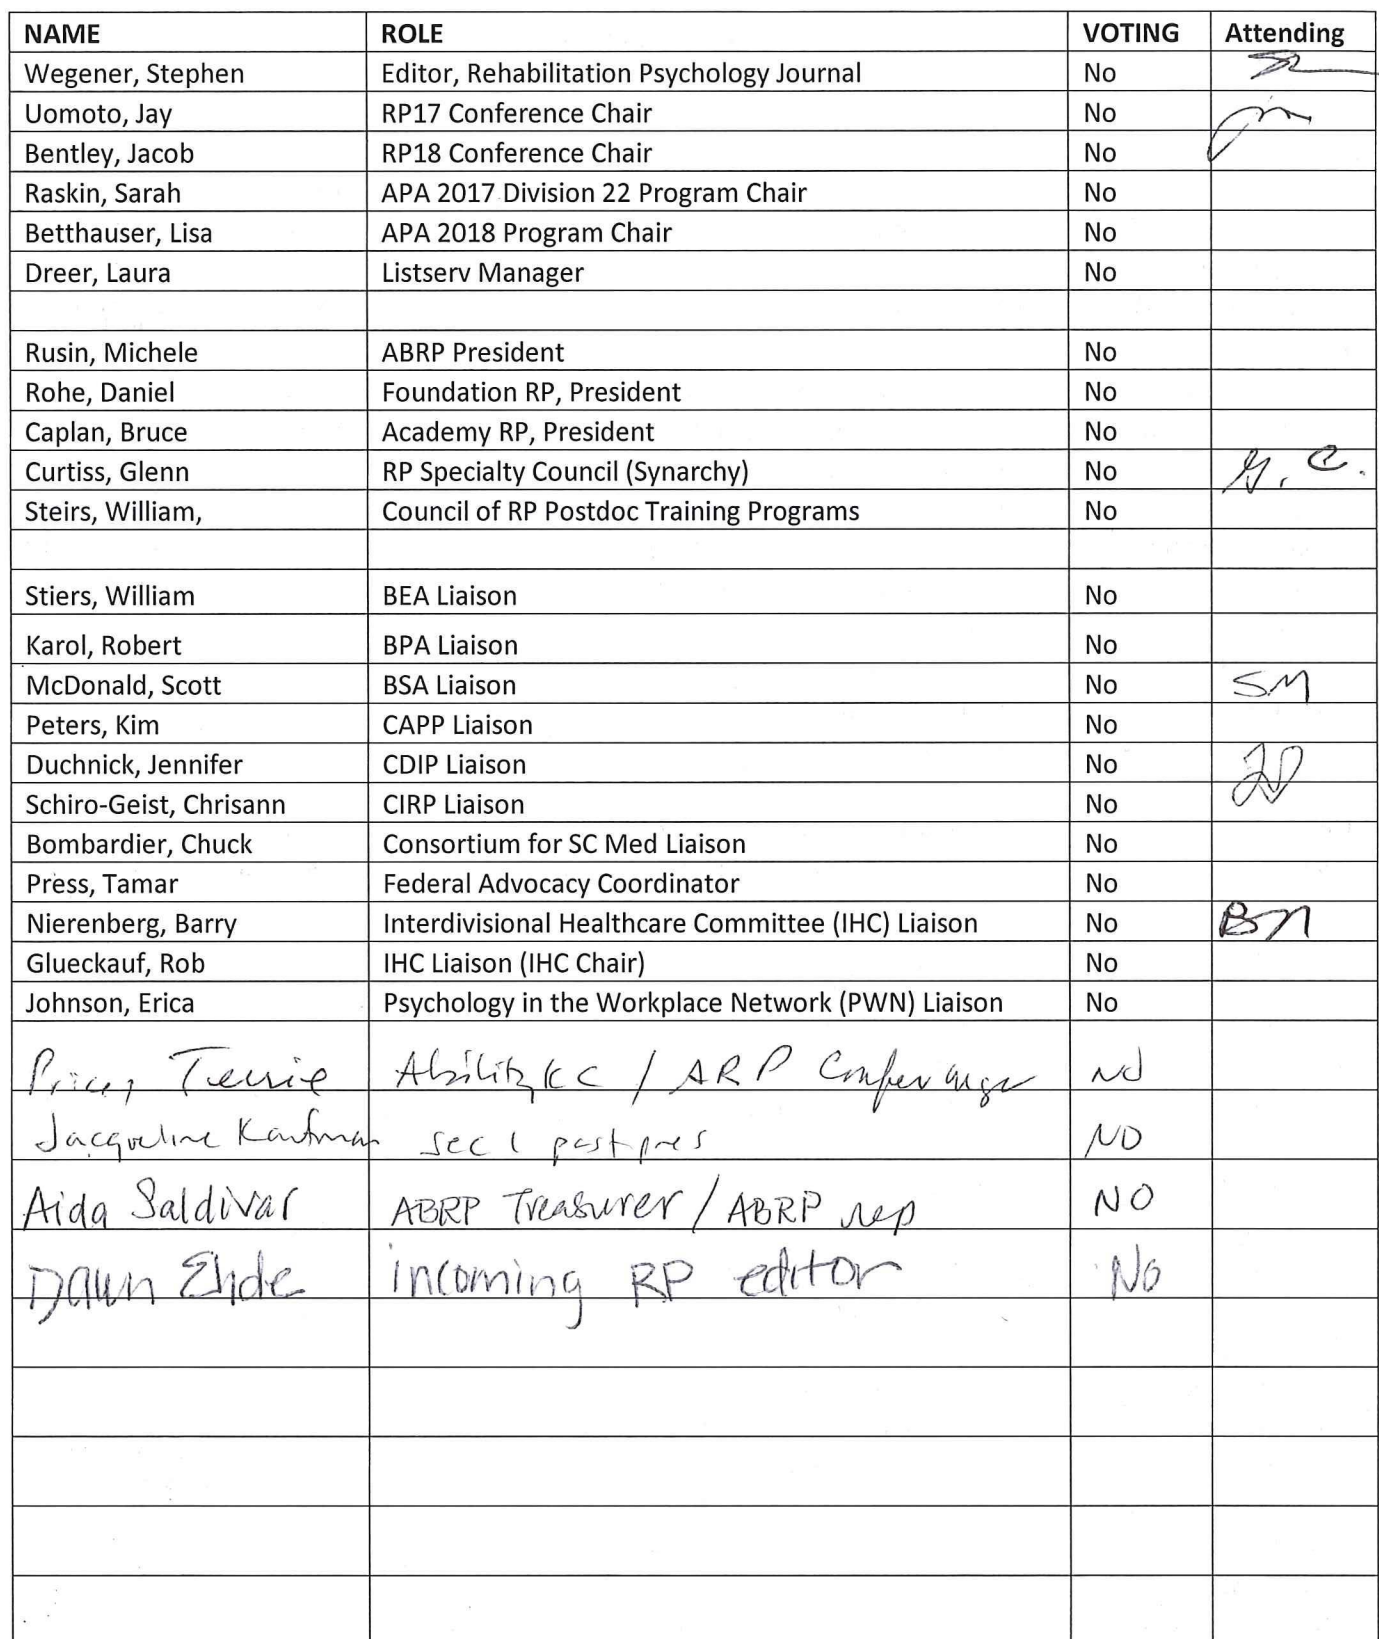 NAME ROLE VOTING Attending
Wegener, Stephen Editor, Rehabilitation Psychology Journal No
Uomoto, Jay RP17 Conference Chair No
Bentley, Jacob RP18 Conference Chair No
Raskin, Sarah APA 2017 Division 22 Program Chair No
Betthauser, Lisa APA 2018 Program Chair No
Dreer, Laura Listserv Manager No
Rusin, Michele ABRP President No
Rohe, Daniel Foundation RP, President No
Caplan, Bruce Academy RP, President No
Curtiss, Glenn RP Specialty Council (Synarchy) No G. C.
Steirs, William, Council of RP Postdoc Training Programs No
Stiers, William BEA Liaison No
Karol, Robert BPA Liaison No
McDonald, Scott BSA Liaison No SM
Peters, Kim CAPP Liaison No
Duchnick, Jennifer CDIP Liaison No JD
Schiro-Geist, Chrisann CIRP Liaison No
Bombardier, Chuck Consortium for SC Med Liaison No
Press, Tamar Federal Advocacy Coordinator No
Nierenberg, Barry Interdivisional Healthcare Committee (IHC) Liaison No BN
Glueckauf, Rob IHC Liaison (IHC Chair) No
Johnson, Erica Psychology in the Workplace Network (PWN) Liaison No
Price, Terrie Ability KC / ARP No
Jacqueline Kaufman sec 1 past pres NO
Aida Saldivar ABRP Treasurer / ABRP rep NO
Dawn Ehde incoming RP editor No